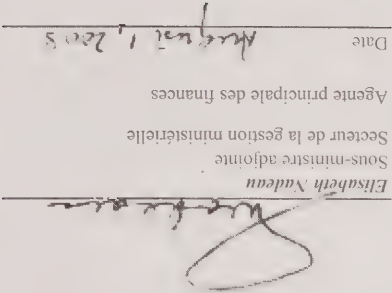 Elisabeth Nadeau
Sous-ministre adjointe
Secteur de la gestion ministérielle
Agente principale des finances
August 1, 2008
Date